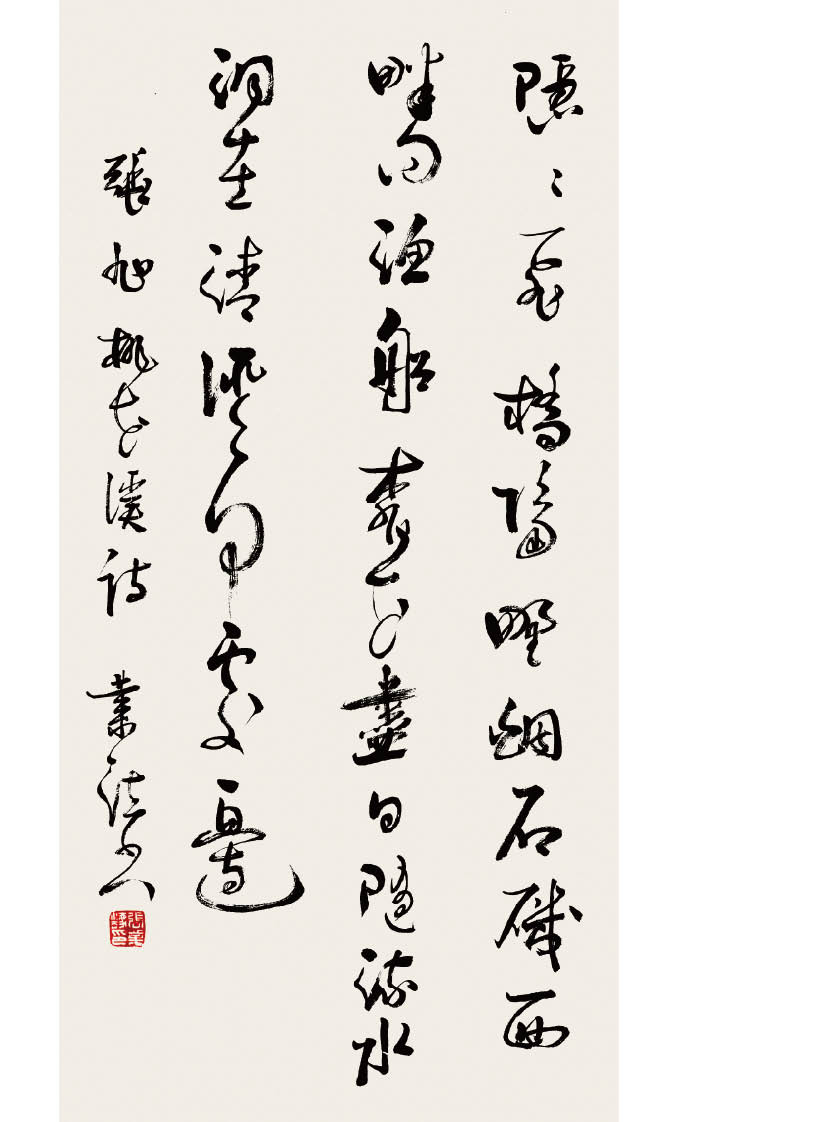 隱〻飛橋隔野烟石磯西
畔問漁船桃花盡日隨流水
洞在清溪何處邊
張旭桃花溪詩 業謹書